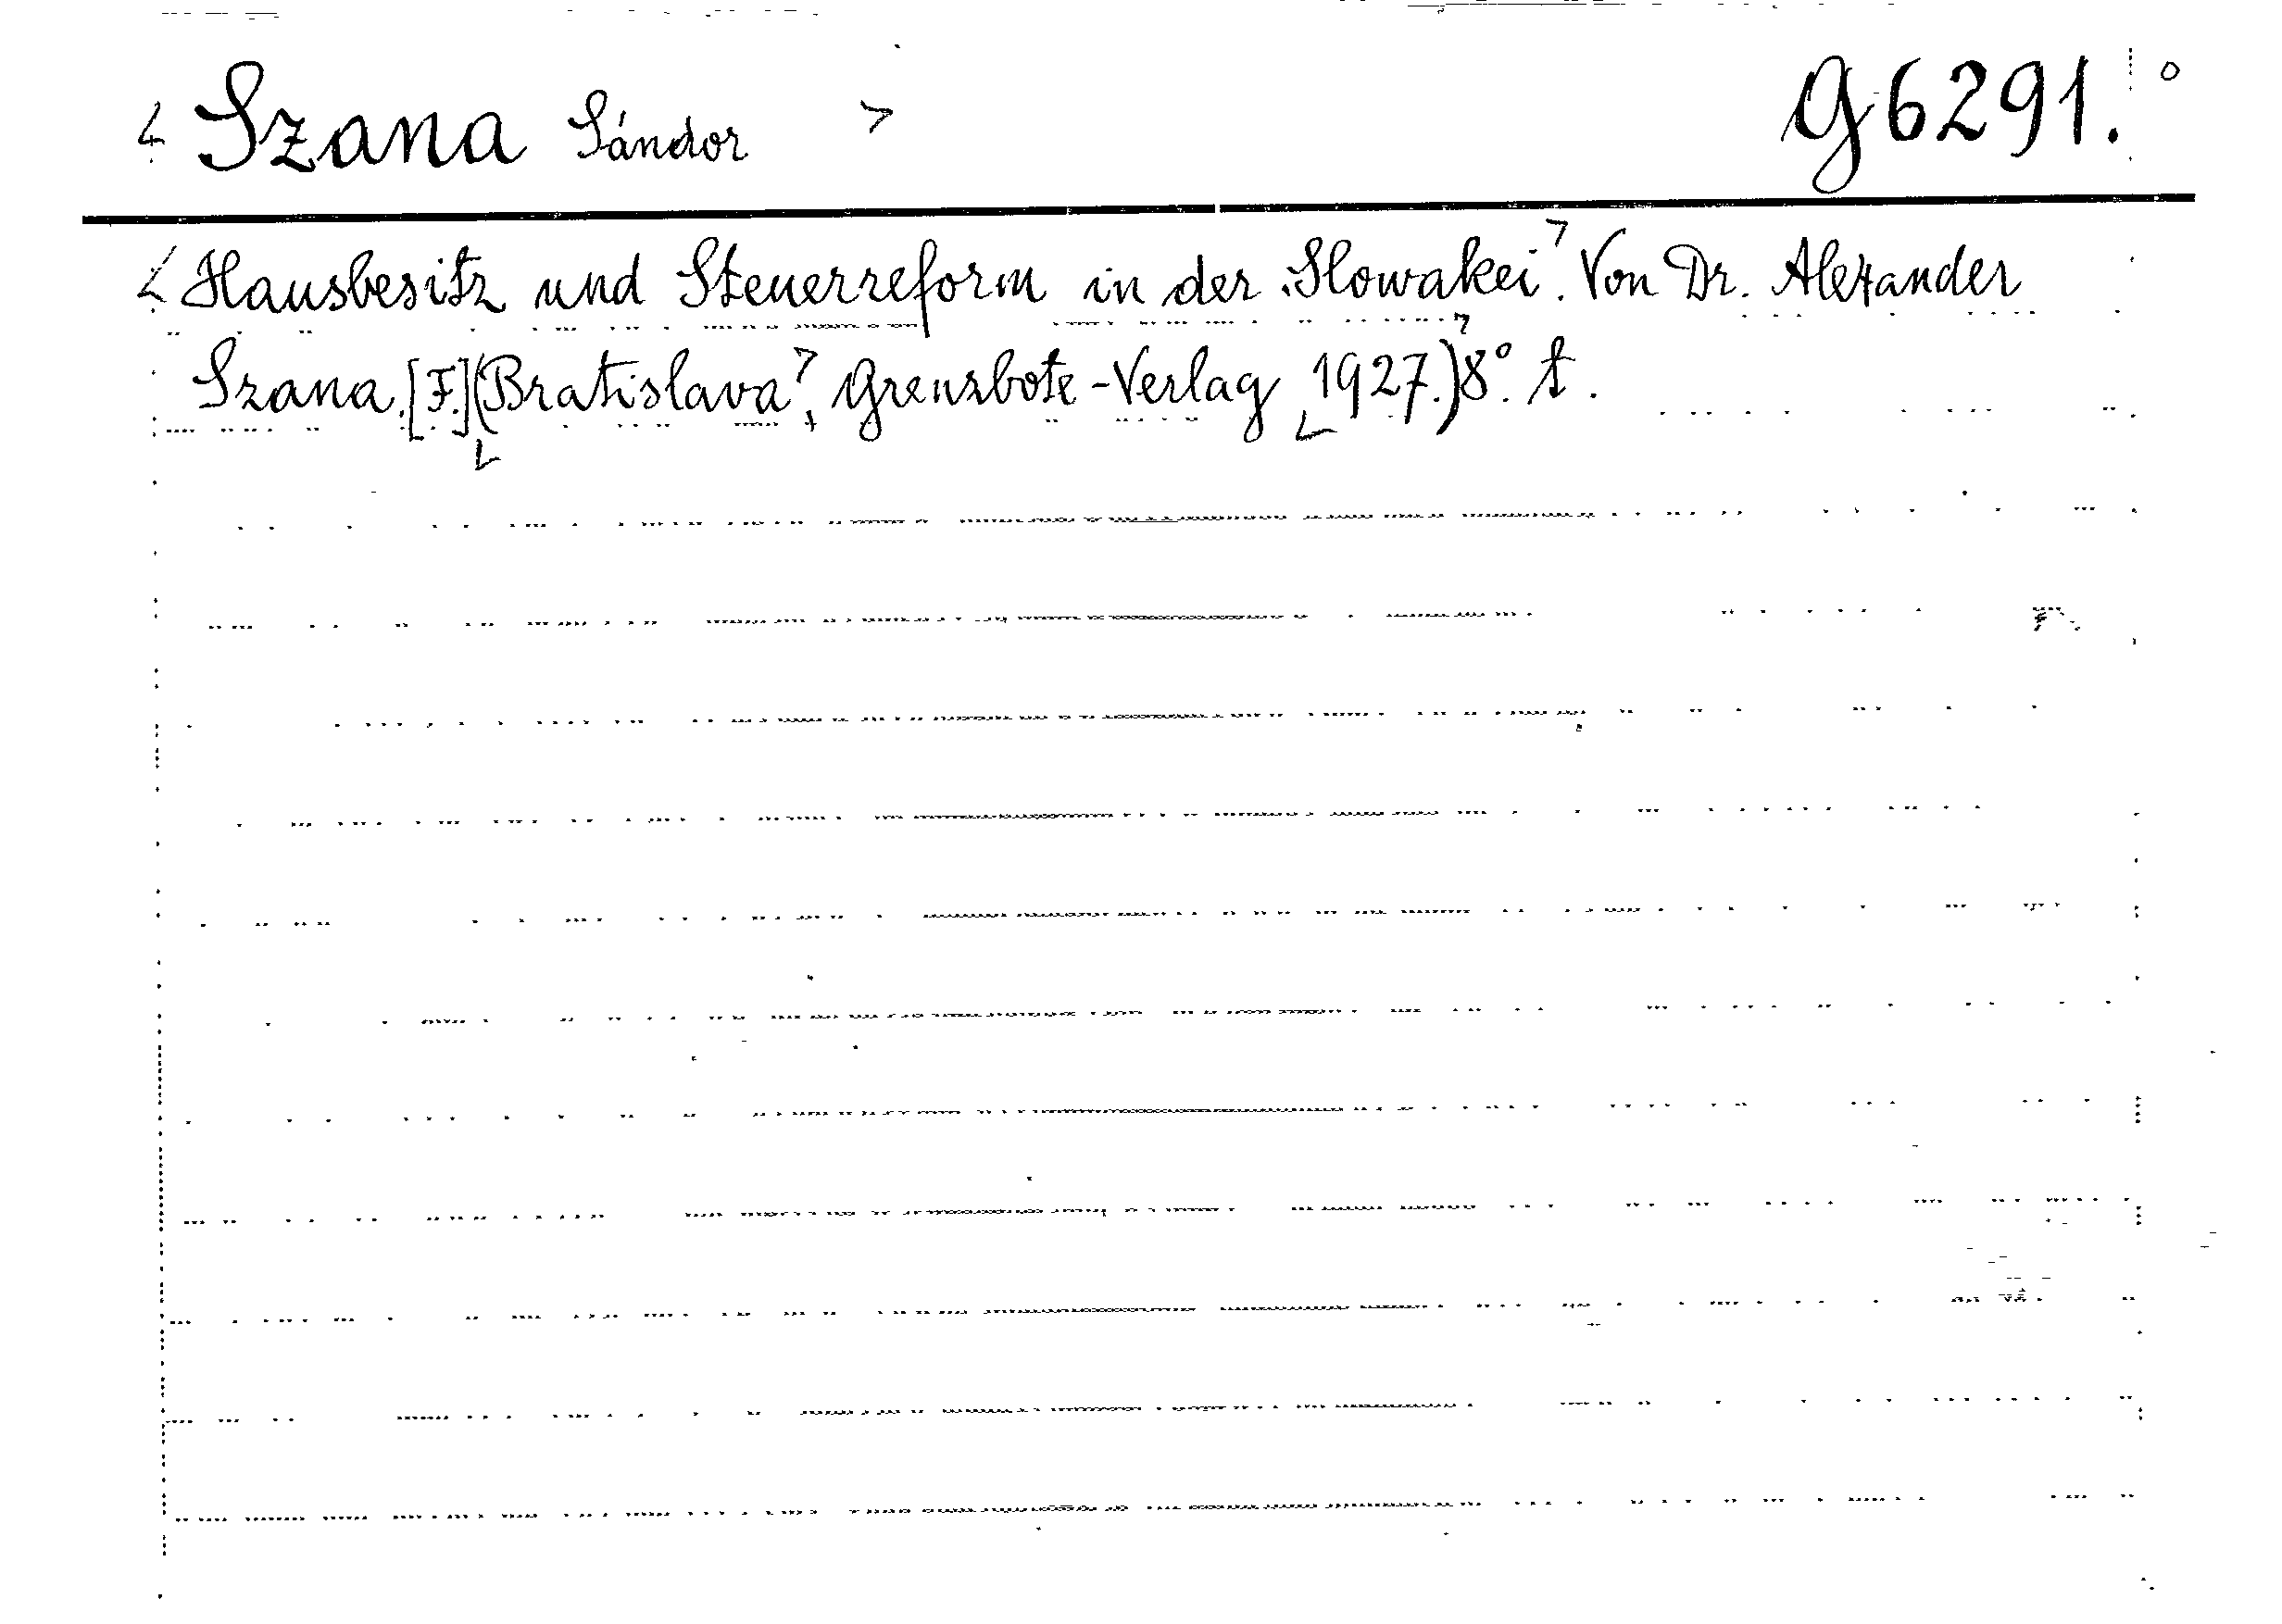 < Szana Sándor > G 6291. °
<Hausbesitz und Steuerreform in der Slowakei>. Von Dr. Alexander
Szana. [F.] (<Bratislava>, Grenzbote-Verlag, <1927.>) 8°. t.